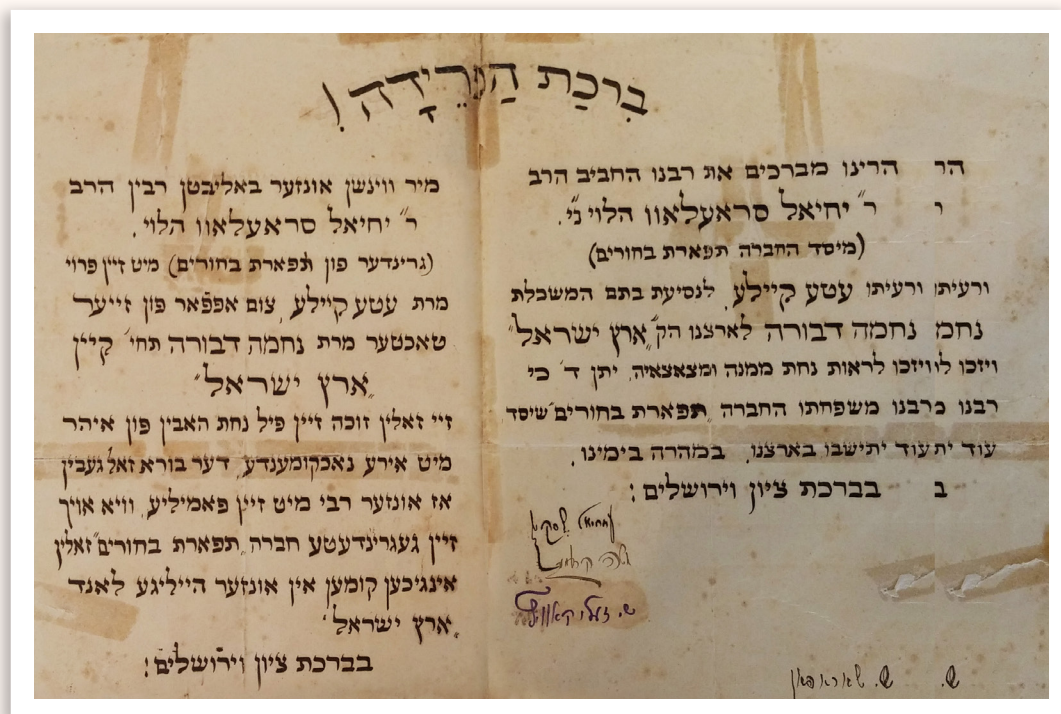 בִרכַת הַפְרֵידָה !
הר הרינו מברכים את רבנו החביב הרב
ר ר״ יחיאל סראעלאוו הלוי נ״י.
(מיסד החברה תפארת בחורים)
ורעיתו ורעיתו עטע קיילע, לנסיעת בתם המשכלת
נחמ נחמה דבורה לארצנו הק׳ „ארץ ישראל״
ויזכו לו ויזכו לראות נחת ממנה ומצאצאיה, יתן ד׳ כי
רבנו מרבנו משפחתו החברה „תפארת בחורים״ שיסד
עוד ית עוד יתישבו בארצנו, במהרה בימינו.
ב בברכת ציון וירושלים:
ש. ש. שאראפאן
מיר ווינשן אונזער באליבטן רבין הרב
ר״ יחיאל סראעלאוו הלוי.
(גרינדער פון תפארת בחורים) מיט זיין פרוי
מרת עטע קיילע, צום אפפאר פון זייער
טאכטער מרת נחמה דבורה תחי׳ קיין
„ארץ ישראל״
זיי זאלין זוכה זיין פיל נחת האבין פון איהר
מיט אירע נאכקומענדע, דער בורא זאל געבין
אז אונזער רבי מיט זיין פאמיליע, וויא אויך
זיין געגרינדעטע חברה „תפארת בחורים״ זאלין
אינגיכען קומען אין אונזער הייליגע לאנד
„ארץ ישראל״
בברכת ציון וירושלים: